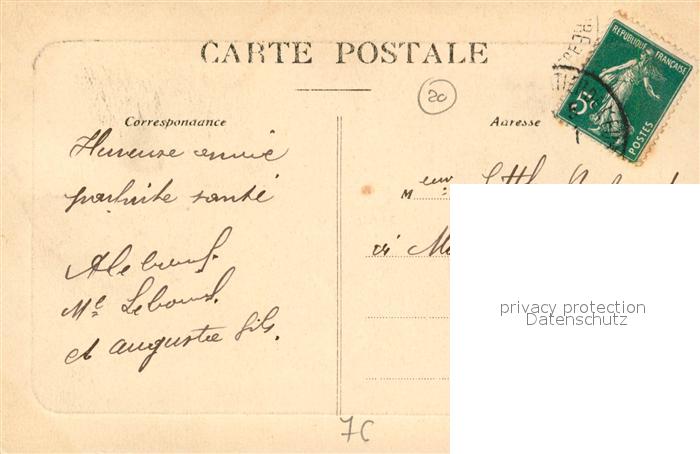 CARTE POSTALE
RÉPUBLIQUE FRANÇAISE
5c
POSTES
20
Correspondance
Adresse
Heureuse année
parfaite santé
A Leboeuf.
Me Leboeuf.
et auguste fils.
M eur
à
privacy protection
Datenschutz
7C